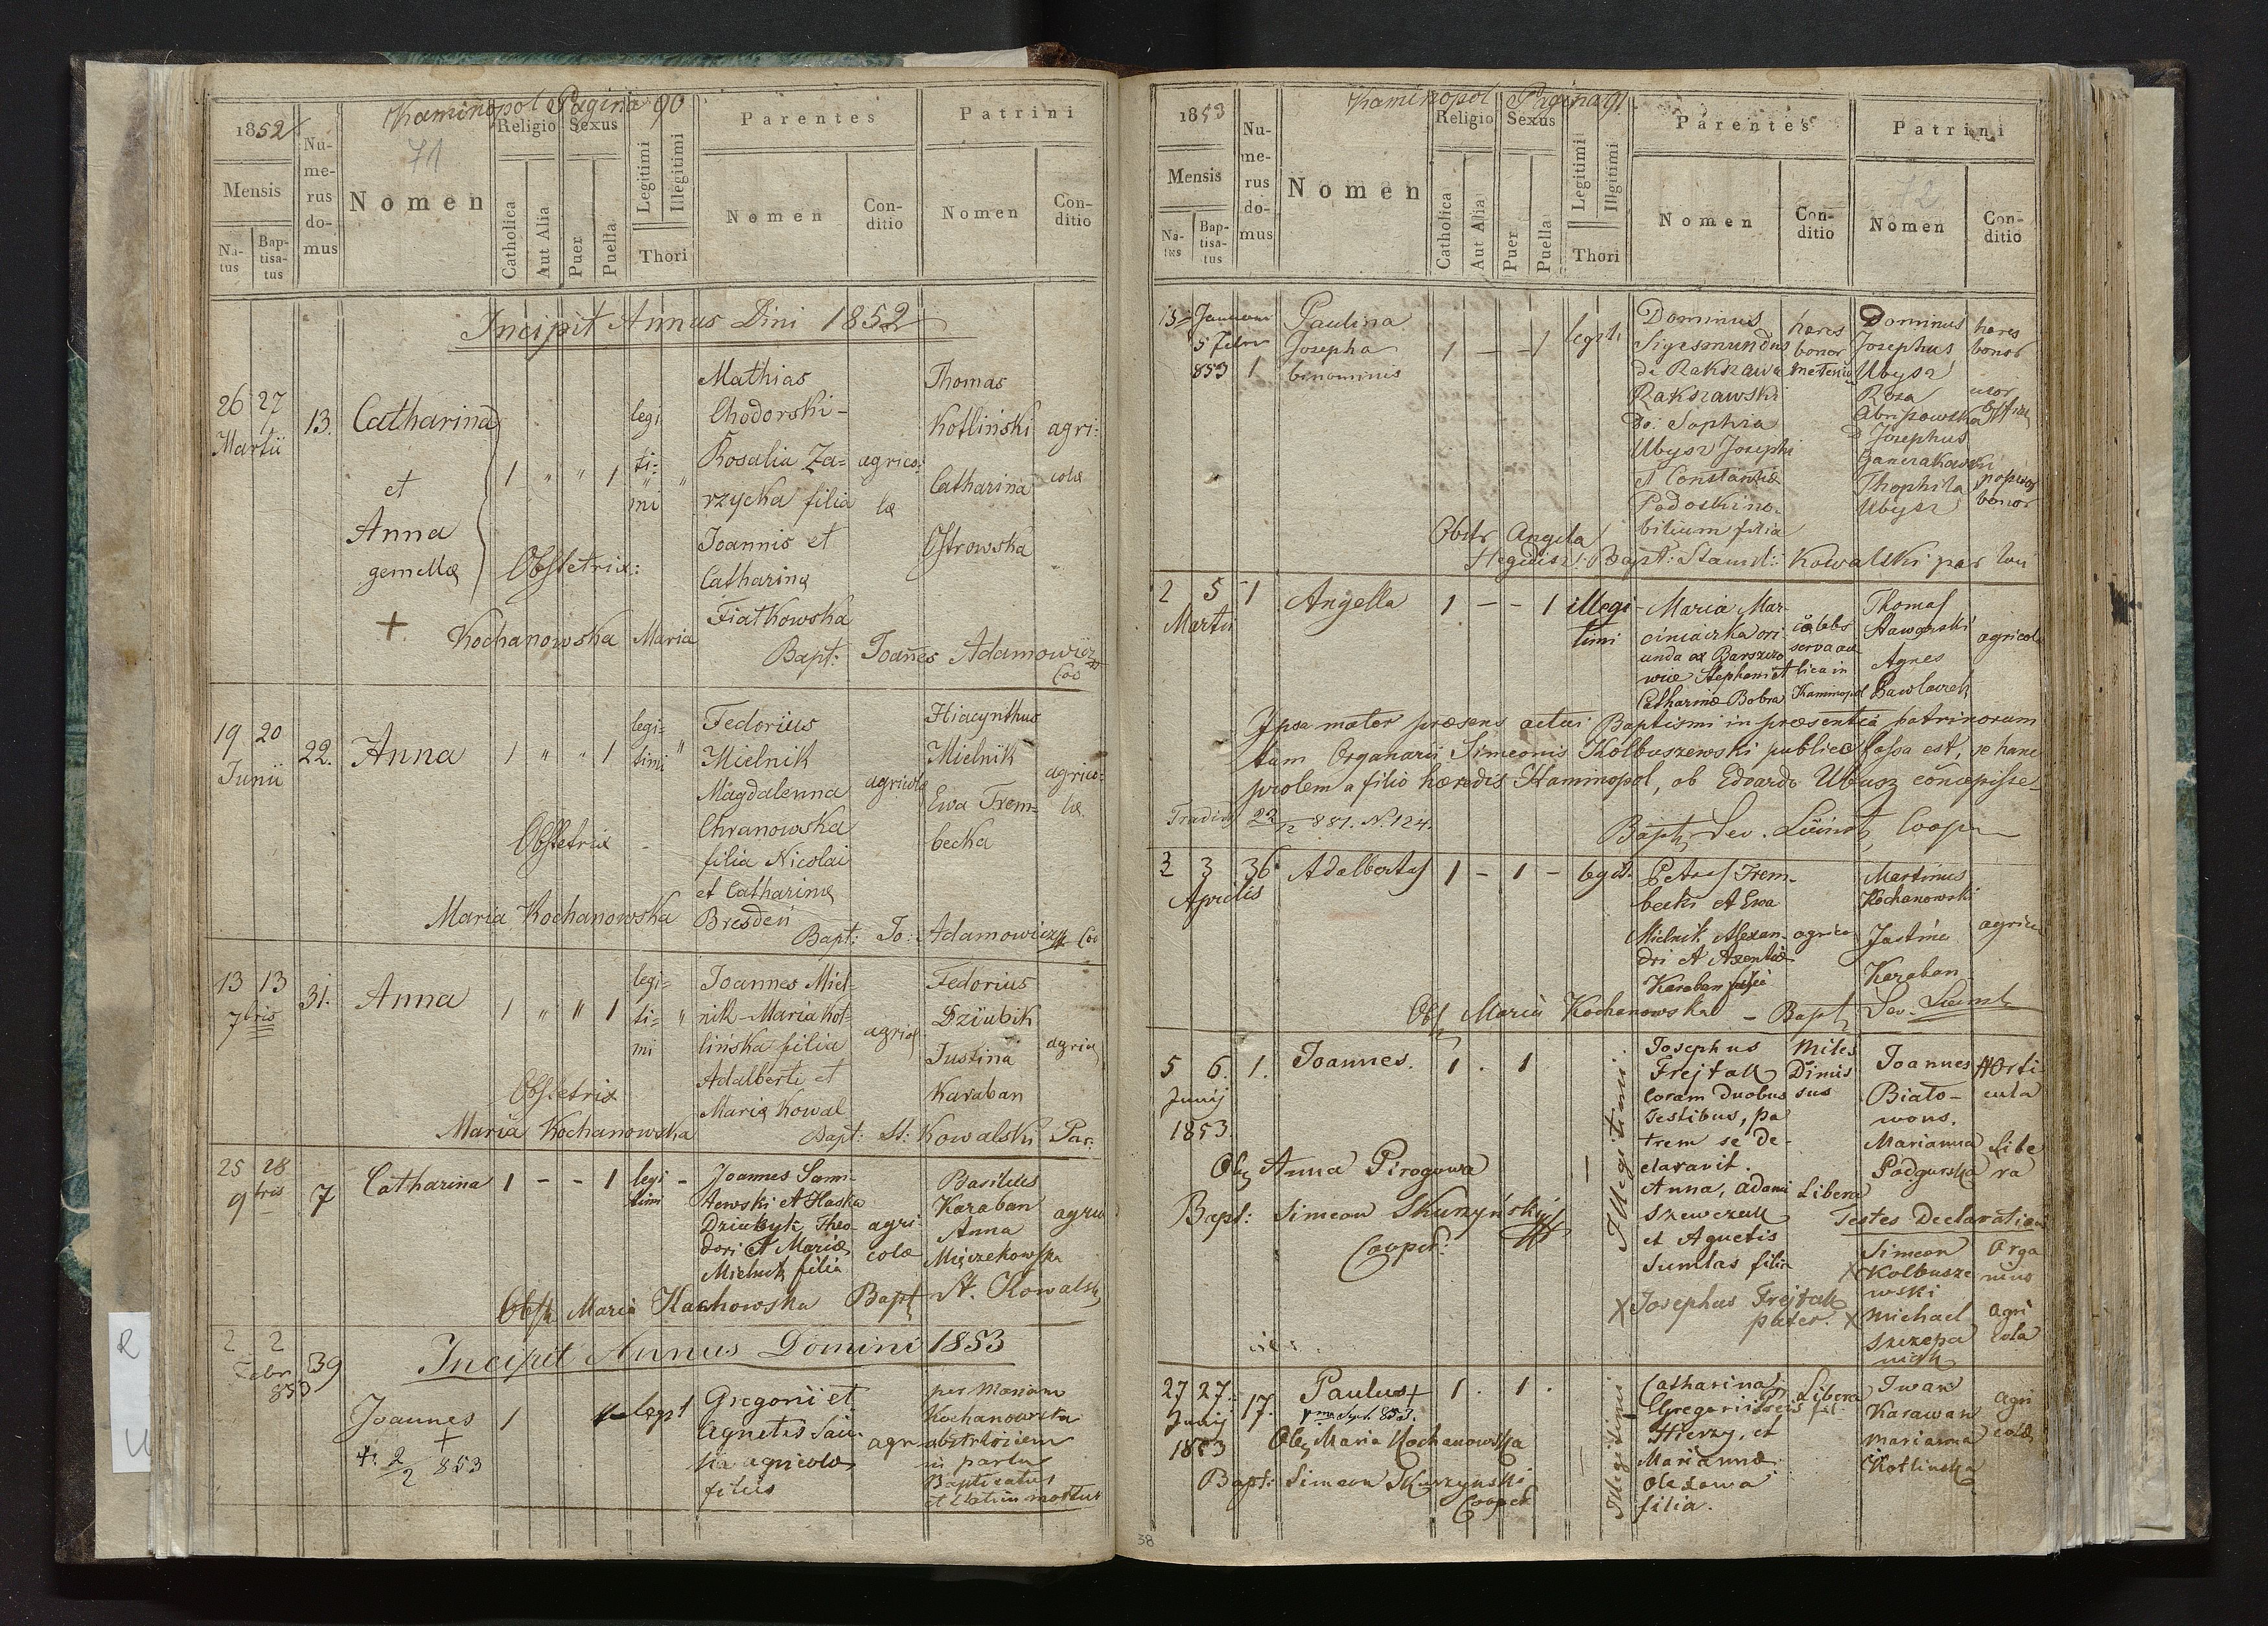 Kaminopol Pagina 90
71
1852
Mensis
Natus
Baptisatus
Numerus domus
Nomen
Religio
Catholica
Aut Alia
Sexus
Puer
Puella
Legitimi
Illegitimi
Thori
Parentes
Nomen
Conditio
Patrini
Nomen
Conditio
Incipit Annus Dini 1852
26 27
Martii
13.
Catharina
et
Anna
gemellæ
+
1 " " 1
legi
ti-
mi
Mathias
Chodorski -
Rosalia Za=
rzycka filia
Joannis et
Catharinæ
Fiatkowska
agrico:
læ
Thomas
Kotliński
Catharina
Ostrowska
agri:
colæ
Obstetrix:
Kochanowska Maria
Bapt: Joañes Adamowicz
Coo
19 20
Junii
22.
Anna
1 " " 1
legi=
timi "
Fedorius
Mielnik
Magdalenna
Chranowska
filia Nicolai
et Catharinæ
Bresden
agricolæ
Hiacynthus
Mielnik
Ewa Trem=
becka
agrico=
læ
Obstetrix
Maria Kochanowska
Bapt: Jo: Adamowicz Coo
13 13
7bris
31.
Anna
1 " " 1
legi=
ti= "
mi
Joannes Miel-
nik - Maria Kot-
linska filia
Adalberti et
Mariæ Kowal
agricol
Fedorius
Dziubik
Justina
Karaban
agricol
Obstetrix
Maria Kochanowska
Bapt: St: Kowalski Par:
25 28
9bris
7
Catharina
1 - - 1
legi -
timi
Joannes Sami-
tewski et Haska
Dziubyk, Theo-
dori et Mariæ
Mielnik filia
agri
colæ
Basilius
Karaban
Anna
Mięczekowska
agrico
Obst Maria Kachowska Bapt St. Kowalski
2 2
Febr
853
39
Incipit Annus Domini 1853
Joannes
+
+. 2/2 853
1
1 legit
Gregorii et
Agnetis Sau-
ka agricolæ
filius
agr
per Mariam
Kochanowska
obstetricem
in partu
Baptisatus
et statim mortus
Kaminopol Pagina 91
1853
Mensis
Natus
Baptisatus
Numerus domus
Nomen
Religio
Catholica
Aut Alia
Sexus
Puer
Puella
Legitimi
Illgitimi
Thori
Parentes
Nomen
Conditio
Patrini
72
Nomen
Conditio
15 Januarii
5 Febr
853 1
Paulina
Josepha
binominis
1 - - 1 legit.
Dominus
Sigismundus
de Rakszawa
Rakszawski
Do: Sophia
Ubysz Josephi
et Constantiæ
Podoski no-
bilium filia
hæres
bonor
Dominus
Josephus
Ubysz
Rosa
Josephus
Thophila
Ubysz
hæres
bonor
uxor
bonor
Obstr Angela
Bapt: Stanisl: Kowalski par loci
2 5 1
Martii
Angella
1 - - 1
illegi -
timi
Maria Mar-
ciniaczka ori
unda ex Barszczo
wice Stephani et
Catharinæ Bobra
cælebs
serva au
lica in
Kaminopol
Thomas
Stawarski
Agnes
Pawlaczek
agricolæ
Ipsa mater præsens actui Baptismi in præsentia patrinorum
tum Organarii Simeonis Kolbuszewski publice fassa est, se hanc
prolem a filio hæredis Kaminopol, ab Edvardo Ubysz concepisse -
Tradidi 22/12 881. N. 124.
Bapt Sev. Cooper
2 3 36
Aprilis
Adalbertus
1 - 1 - legit.
Petrus Trem-
becki et Ewa
Mielnik Alexan-
dri et Axentiæ
Karaban filia
agricol
Martinus
Kochanowski
Justina
Karaban
agricol
Obst Maria Kochanowska - Bapt Sev.
5 6. 1.
Junij
1853.
Joannes.
1 . 1
Illegitimi.
Josephus
Frejtak
coram duobus
testibus, pa
trem se de-
claravit.
Anna, Adami
Szewczuk
et Agnetis
Sumlas filia
Miles
Dimis
sus
Libera
Joannes
Biało-
wons.
Marianna
Podgurska
Horti
cula
Libe
ra
Obs Anna Pirogowa
Bapt: Simeon Skurzyński
Cooper.
Testes Declarationis
Simeon
x Kolbusze
wski
Orga
nius
x Michael
Szczepa
niak
Agri
cola
x Josephus Frejtak
pater.
27 27.
Junij
1853
17.
Paulus +
1 . 1 .
Illegitimi
Catharina
Gregorii
Hierzy, et
Marianna
Olexowa
filia.
Libera
Iwan
Karawan
Marianna
Kotlinska
agri
colæ
Obs Maria Kochanowska
Bapt: Simeon Skurzynski
Cooper
38
R
U